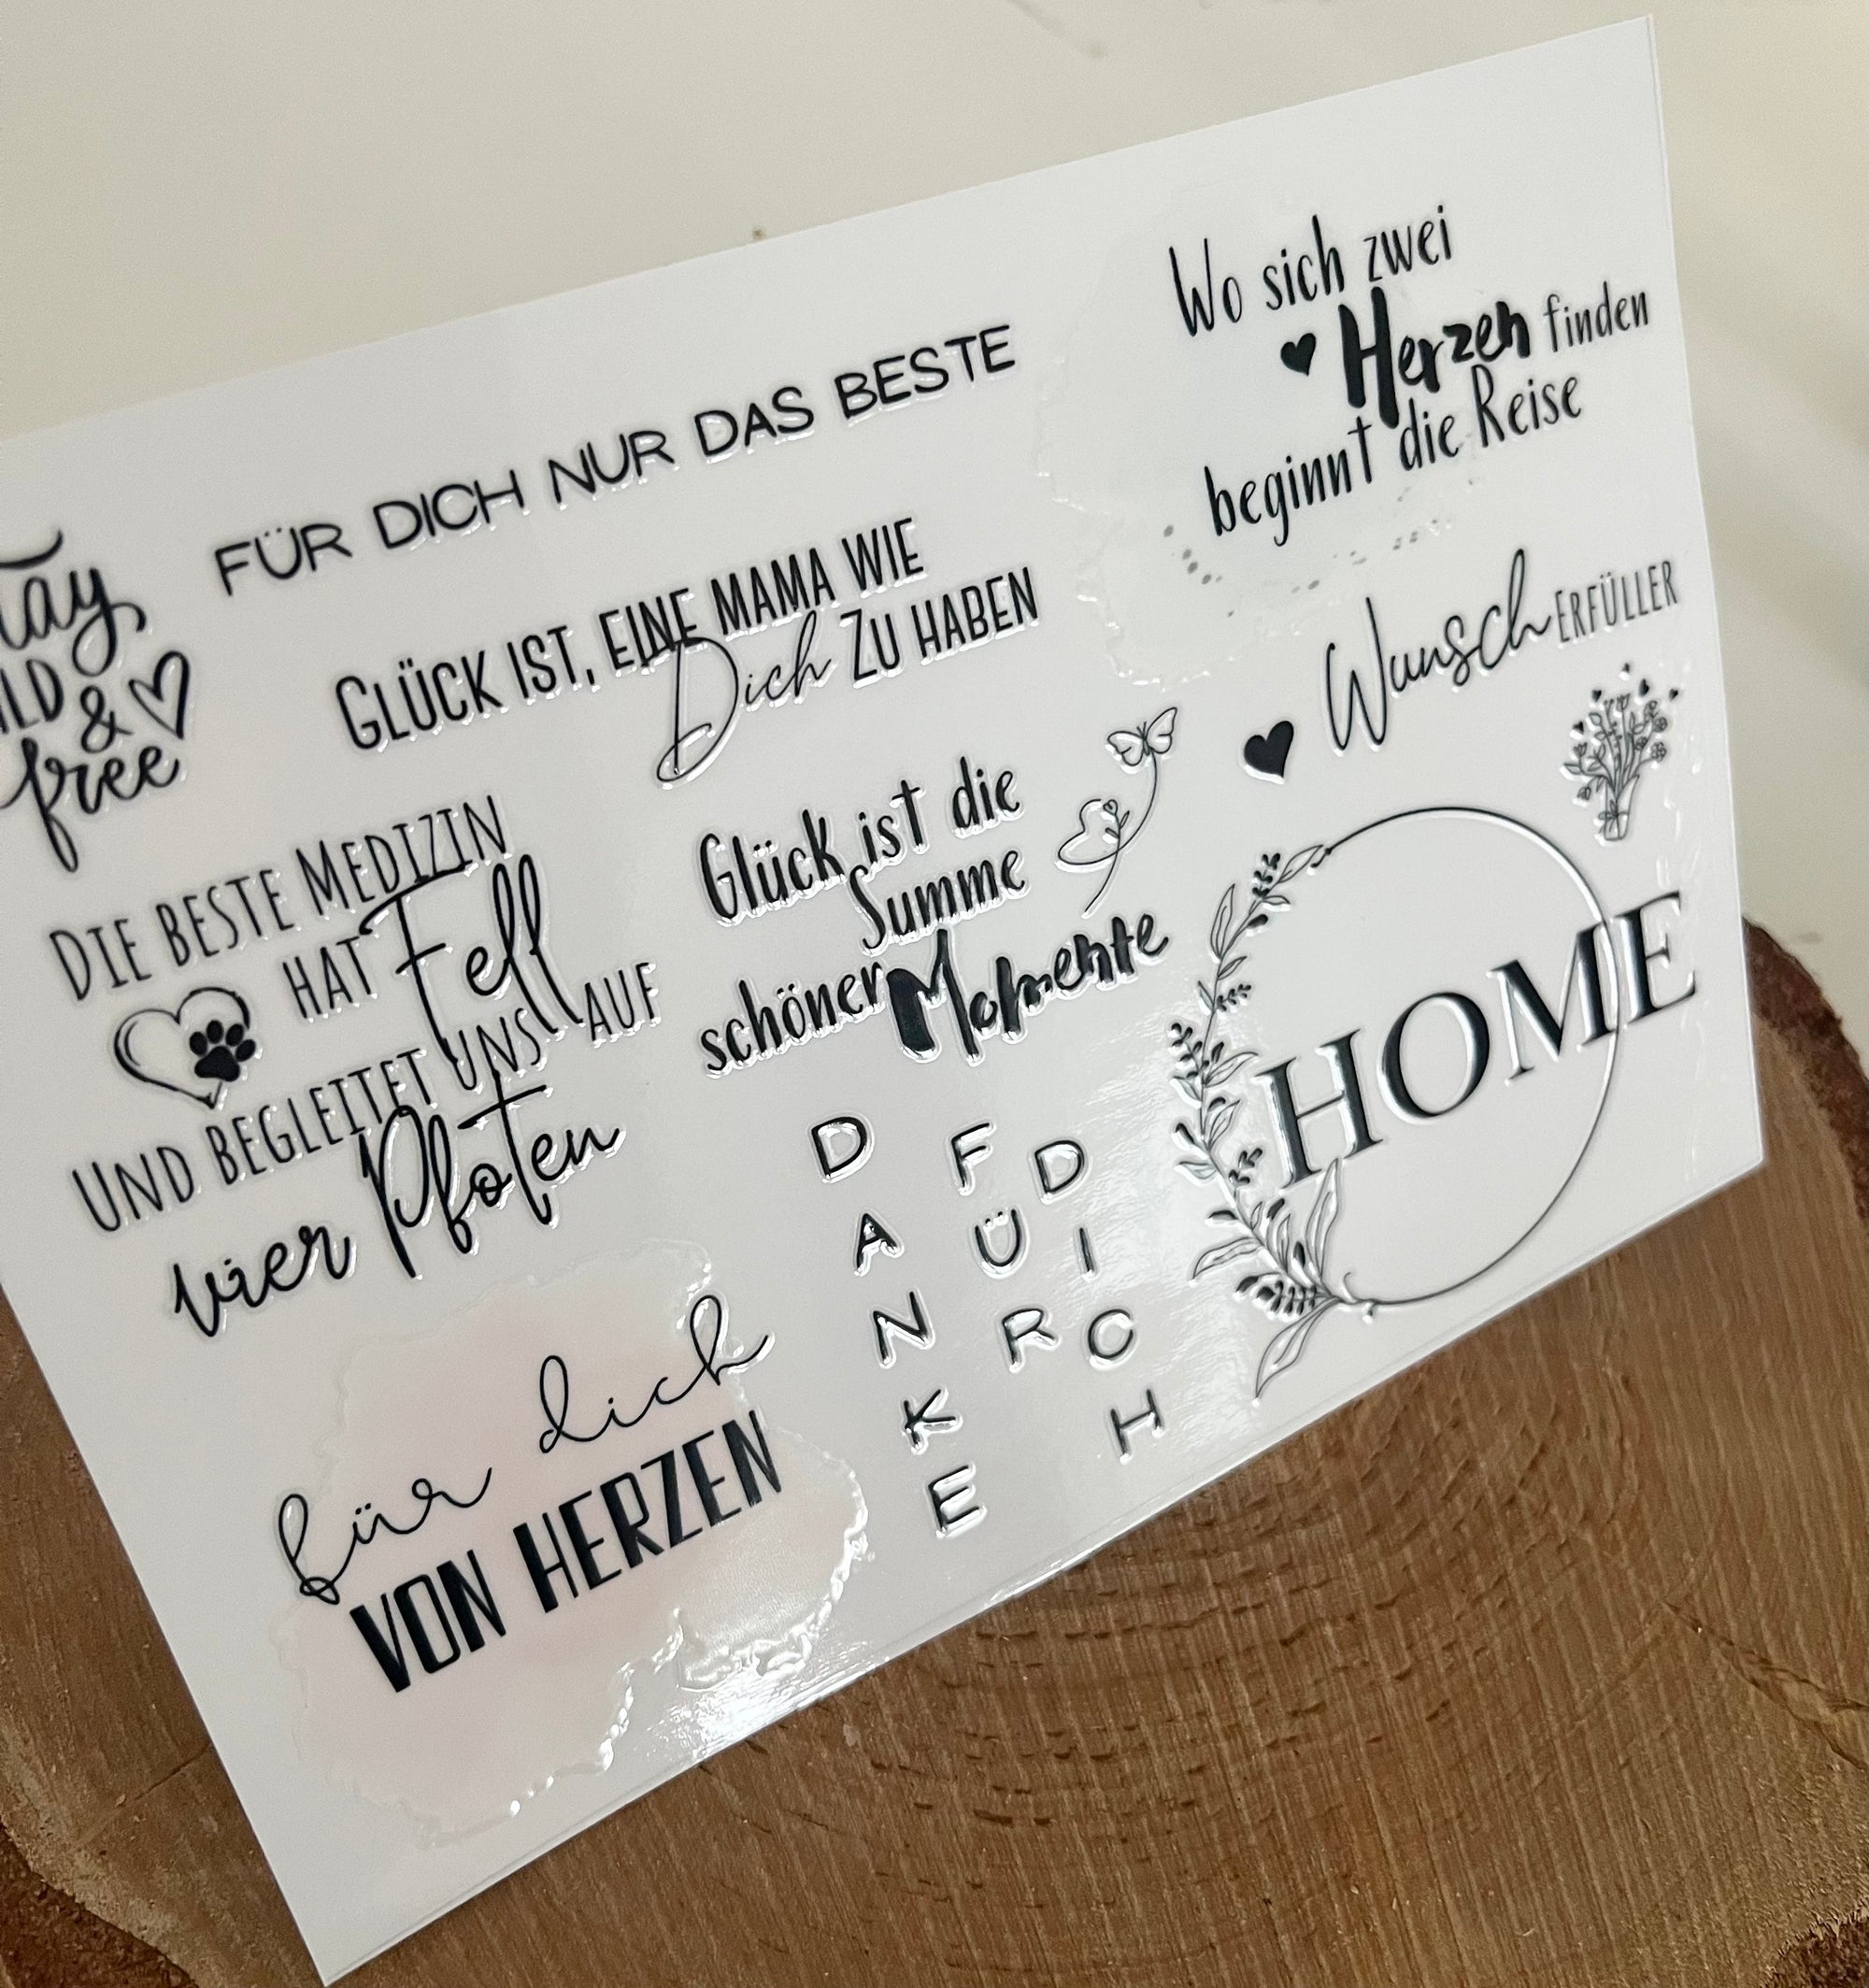 FÜR DICH NUR DAS BESTE
Wo sich zwei
Herzen finden
beginnt die Reise
GLÜCK IST, EINE MAMA WIE
Dich ZU HABEN
& 
free
Wunsch ERFÜLLER
DIE BESTE MEDIZIN
HAT Fell AUF
UND BEGLEITET UNS
vier Pfoten
Glück ist die
Summe
schöner Momente
HOME
für dich
VON HERZEN
DANKE
FÜR
DICH